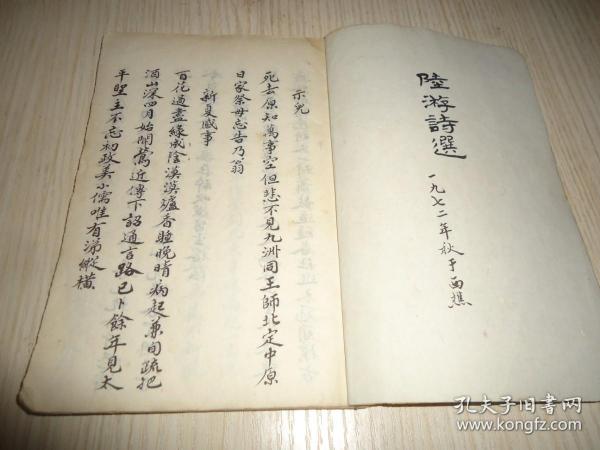 陸游詩選
一九七二年秋于西樵
示兒
死去原知萬事空但悲不見九洲同王師北定中原
日家祭毋忘告乃翁
新夏感事
百花過盡綠成陰漠漠爐香睡晚晴病起兼旬疏把
酒山深四月始聞鶯近傳下詔通言路已卜餘年見太
平聖主不忘初政美小儒唯有涕縱橫
孔夫子旧书网
www.kongfz.com